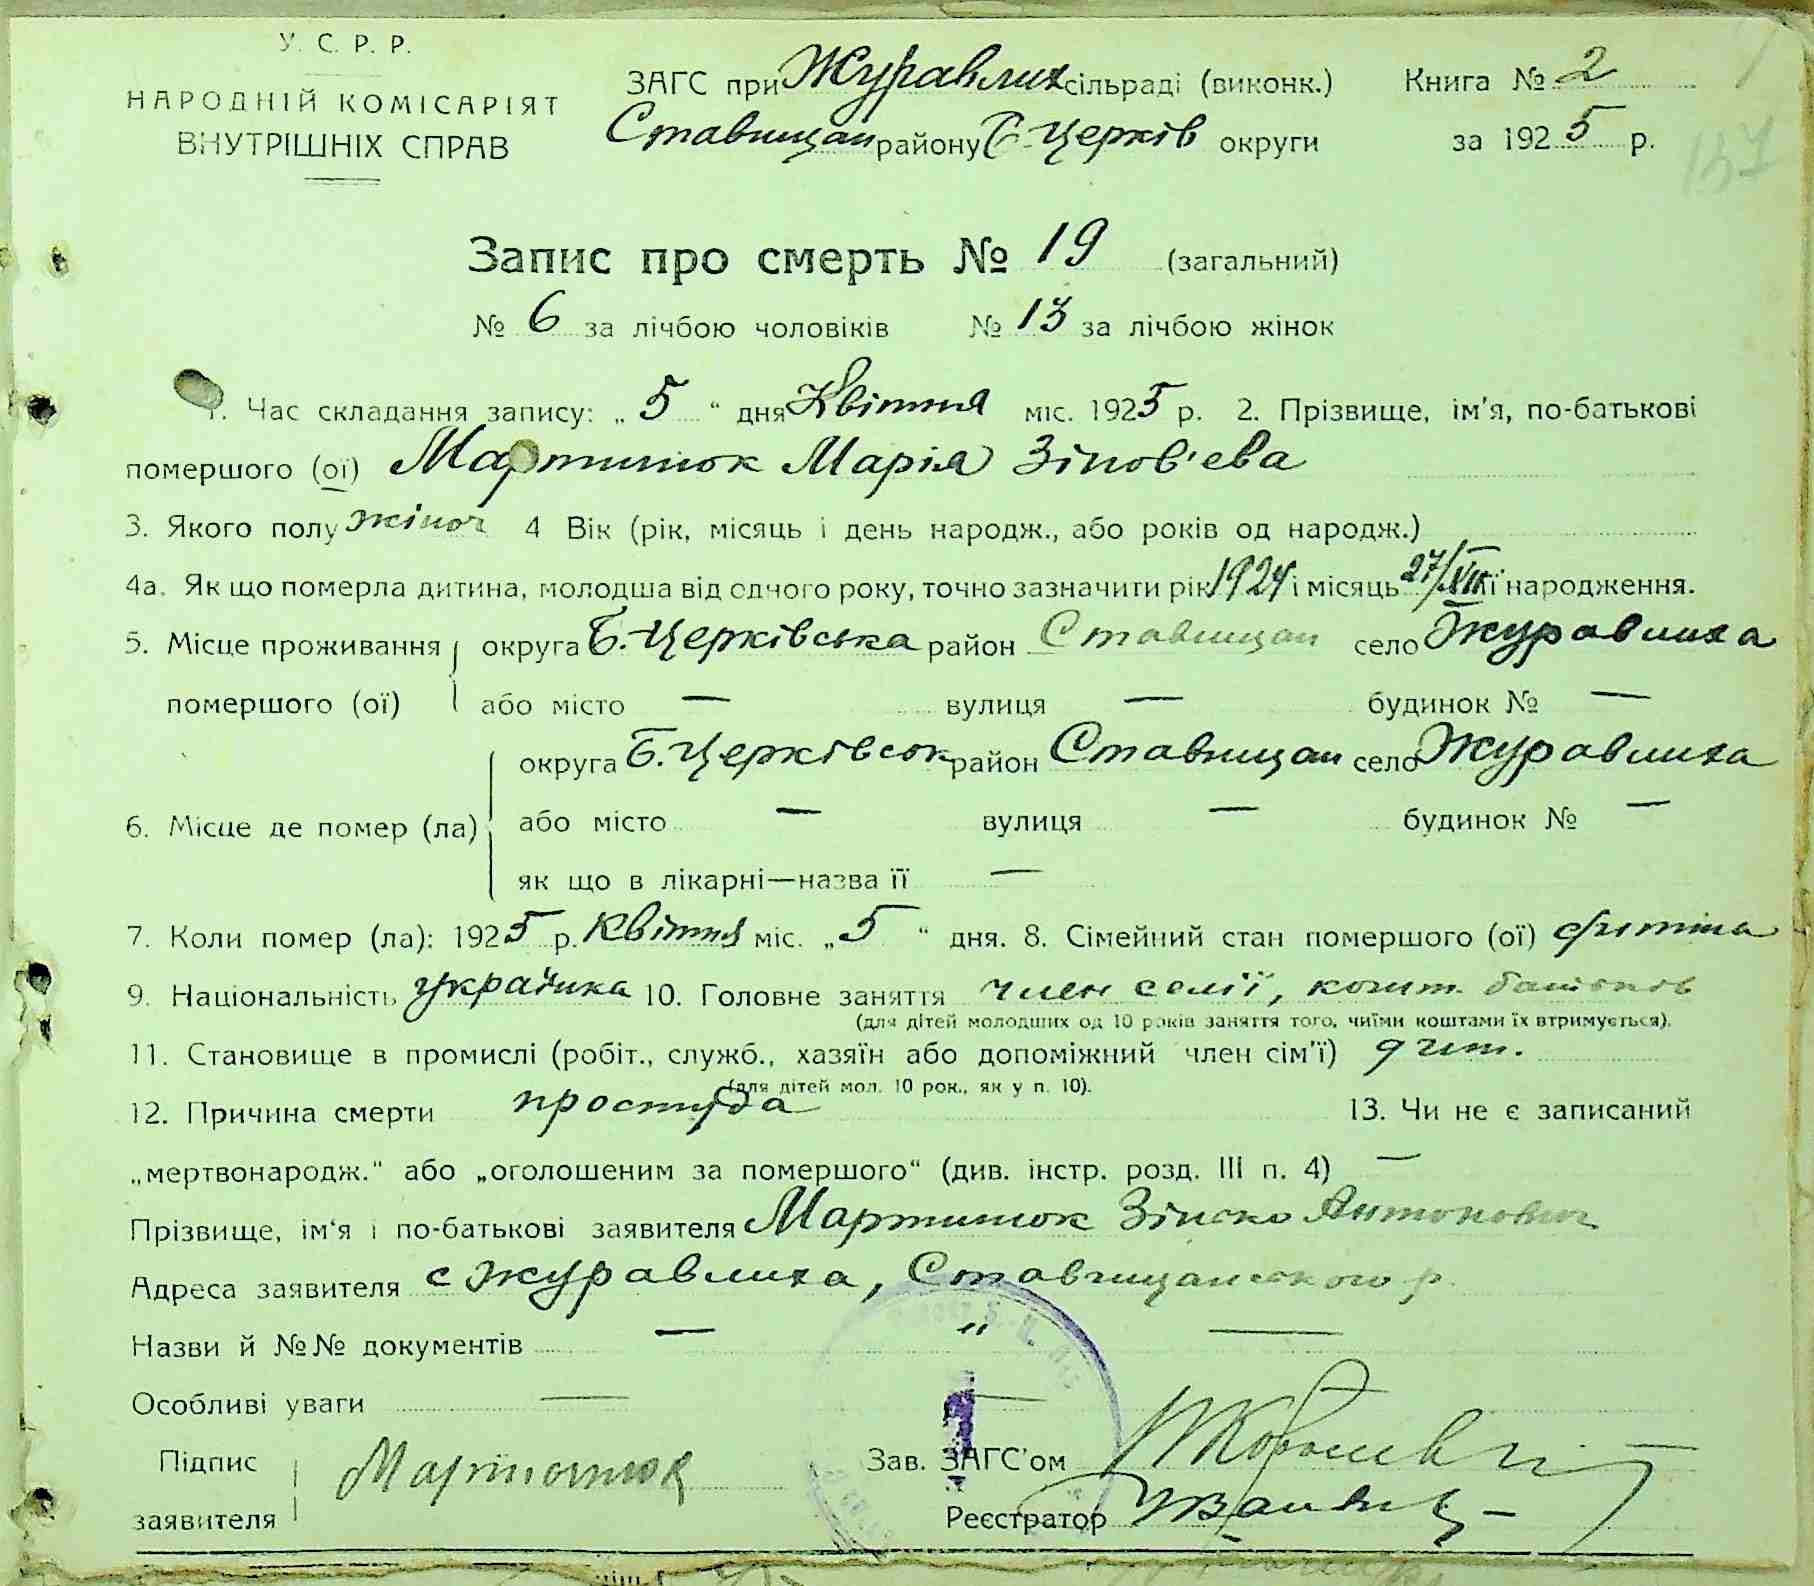 У. С. Р. Р.
НАРОДНІЙ КОМІСАРІЯТ
ВНУТРІШНІХ СПРАВ
ЗАГС при Журавлих сільраді (виконк.) Книга № 2
Ставищан району Б-Церків округи за 1925 р.
137
Запис про смерть № 19 (загальний)
№ 6 за лічбою чоловіків № 13 за лічбою жінок
1. Час складання запису: „5“ дня Квітня міс. 1925 р. 2. Прізвище, ім'я, по-батькові
помершого (ої) Мартинюк Марія Зіновʼєва
3. Якого полу жіноч 4 Вік (рік, місяць і день народж., або років од народж.)
4а. Як що померла дитина, молодша від одчого року, точно зазначити рік 1924 і місяць 27/XII її народження.
5. Місце проживання округа Б.-Церківська район Ставищан село Журавлиха
помершого (ої) або місто — вулиця — будинок № —
округа Б.-Церківськ район Ставищан село Журавлиха
6. Місце де помер (ла) або місто — вулиця — будинок № —
як що в лікарні—назва її —
7. Коли помер (ла): 1925 р. Квітня міс. „5“ дня. 8. Сімейний стан помершого (ої) дитина
9. Національність українка 10. Головне заняття член семії, кошт. батьків
(для дітей молодших од 10 років заняття того, чиїми коштами їх втримується).
11. Становище в промислі (робіт., служб., хазяїн або допоміжний член сім'ї) дит.
(для дітей мол. 10 рок., як у п. 10).
12. Причина смерти простуда 13. Чи не є записаний
„мертвонародж.“ або „оголошеним за помершого“ (див. інстр. розд. III п. 4) —
Прізвище, ім'я і по-батькові заявителя Мартинюк Зінько Антонович
Адреса заявителя с Журавлиха, Ставищанського р.
Назви й №№ документів — " —
Особливі уваги — —
Підпис заявителя Мартинюк Зав. ЗАГС'ом
Реєстратор